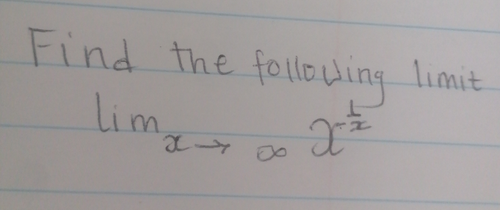 Find the following limit
lim x→ ∞ x^{1/x}